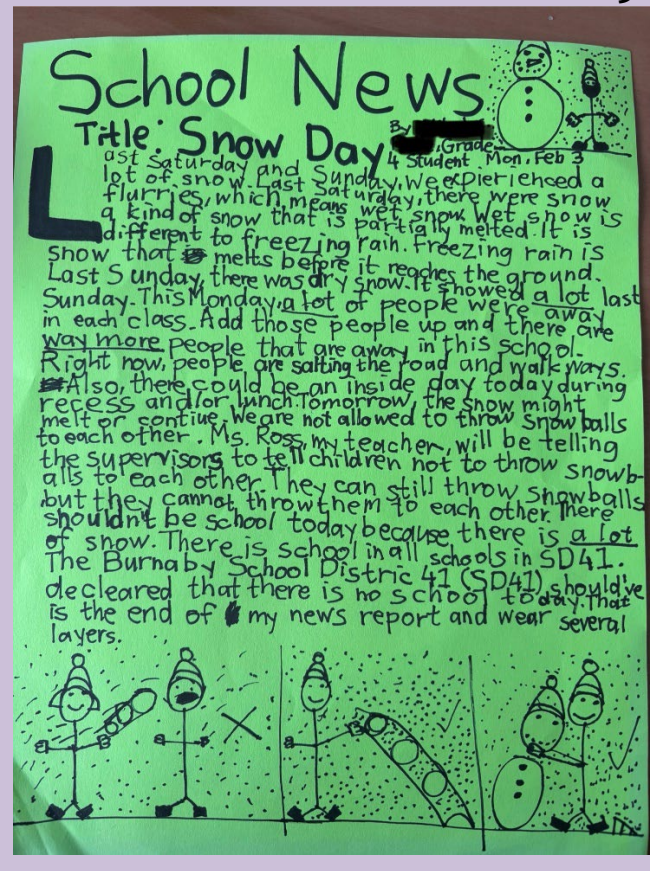 School News
Title: Snow Day
By
, Grade
4 Student Mon, Feb 3
Last Saturday and Sunday, we expierienced a
lot of snow. Last Saturday, there were snow
flurries, which means wet snow. Wet snow is
a kind of snow that is partially melted. It is
different to freezing rain. Freezing rain is
snow that melts before it reaches the ground.
Last Sunday, there was dry snow. It snowed a lot last
Sunday. This Monday, a lot of people were away
in each class. Add those people up and there are
way more people that are away in this school.
Right now, people are salting the road and walk ways.
Also, there could be an inside day today during
recess and/or lunch. Tomorrow, the snow might
melt or contiue. We are not allowed to throw snowballs
to each other. Ms. Ross, my teacher, will be telling
the supervisors to tell children not to throw snowb-
alls to each other. They can still throw snowballs
but they cannot throw them to each other. There
shouldn't be school today because there is a lot
of snow. There is school in all schools in SD41.
The Burnaby School Distric 41 (SD41) should've
decleared that there is no school today. That
is the end of my news report and wear several
layers.